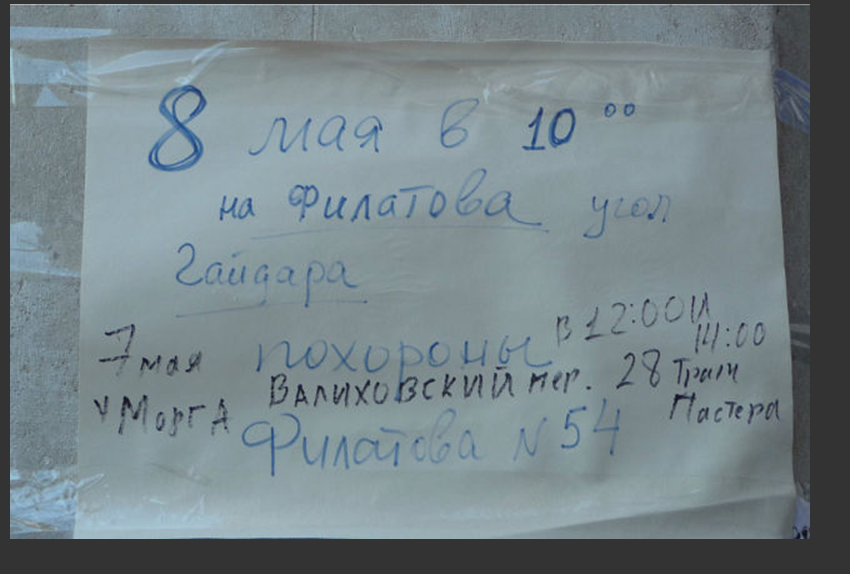 8 мая в 10 00
на Филатова угол
Гайдара
7 мая похороны в 12:00 и 14:00
у Морга Валиховский пер. 28 Трам Пастера
Филатова N 54